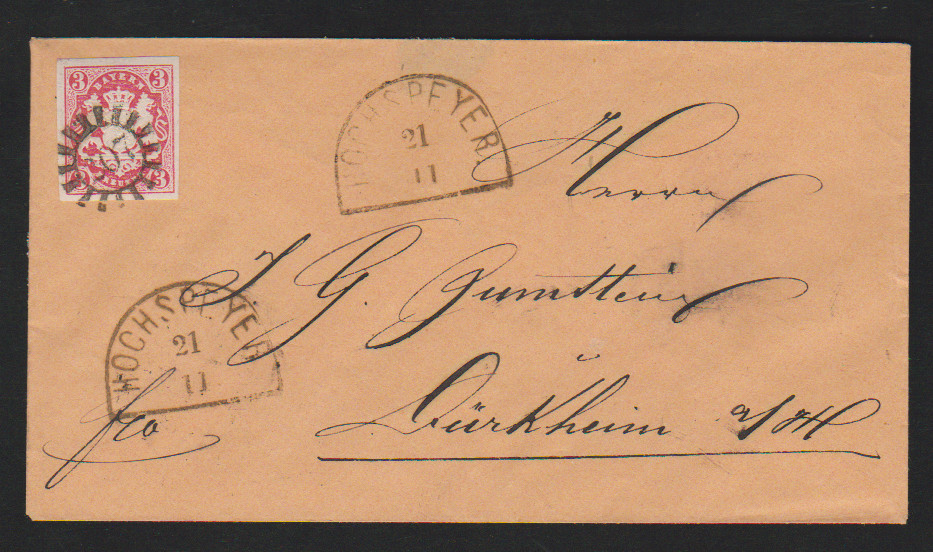 3 BAYERN 3
3 3
HOCHSPEYER
21
11
Herrn
J. G. Zumstein
HOCHSPEYER
21
11
fco
Dürkheim a/H